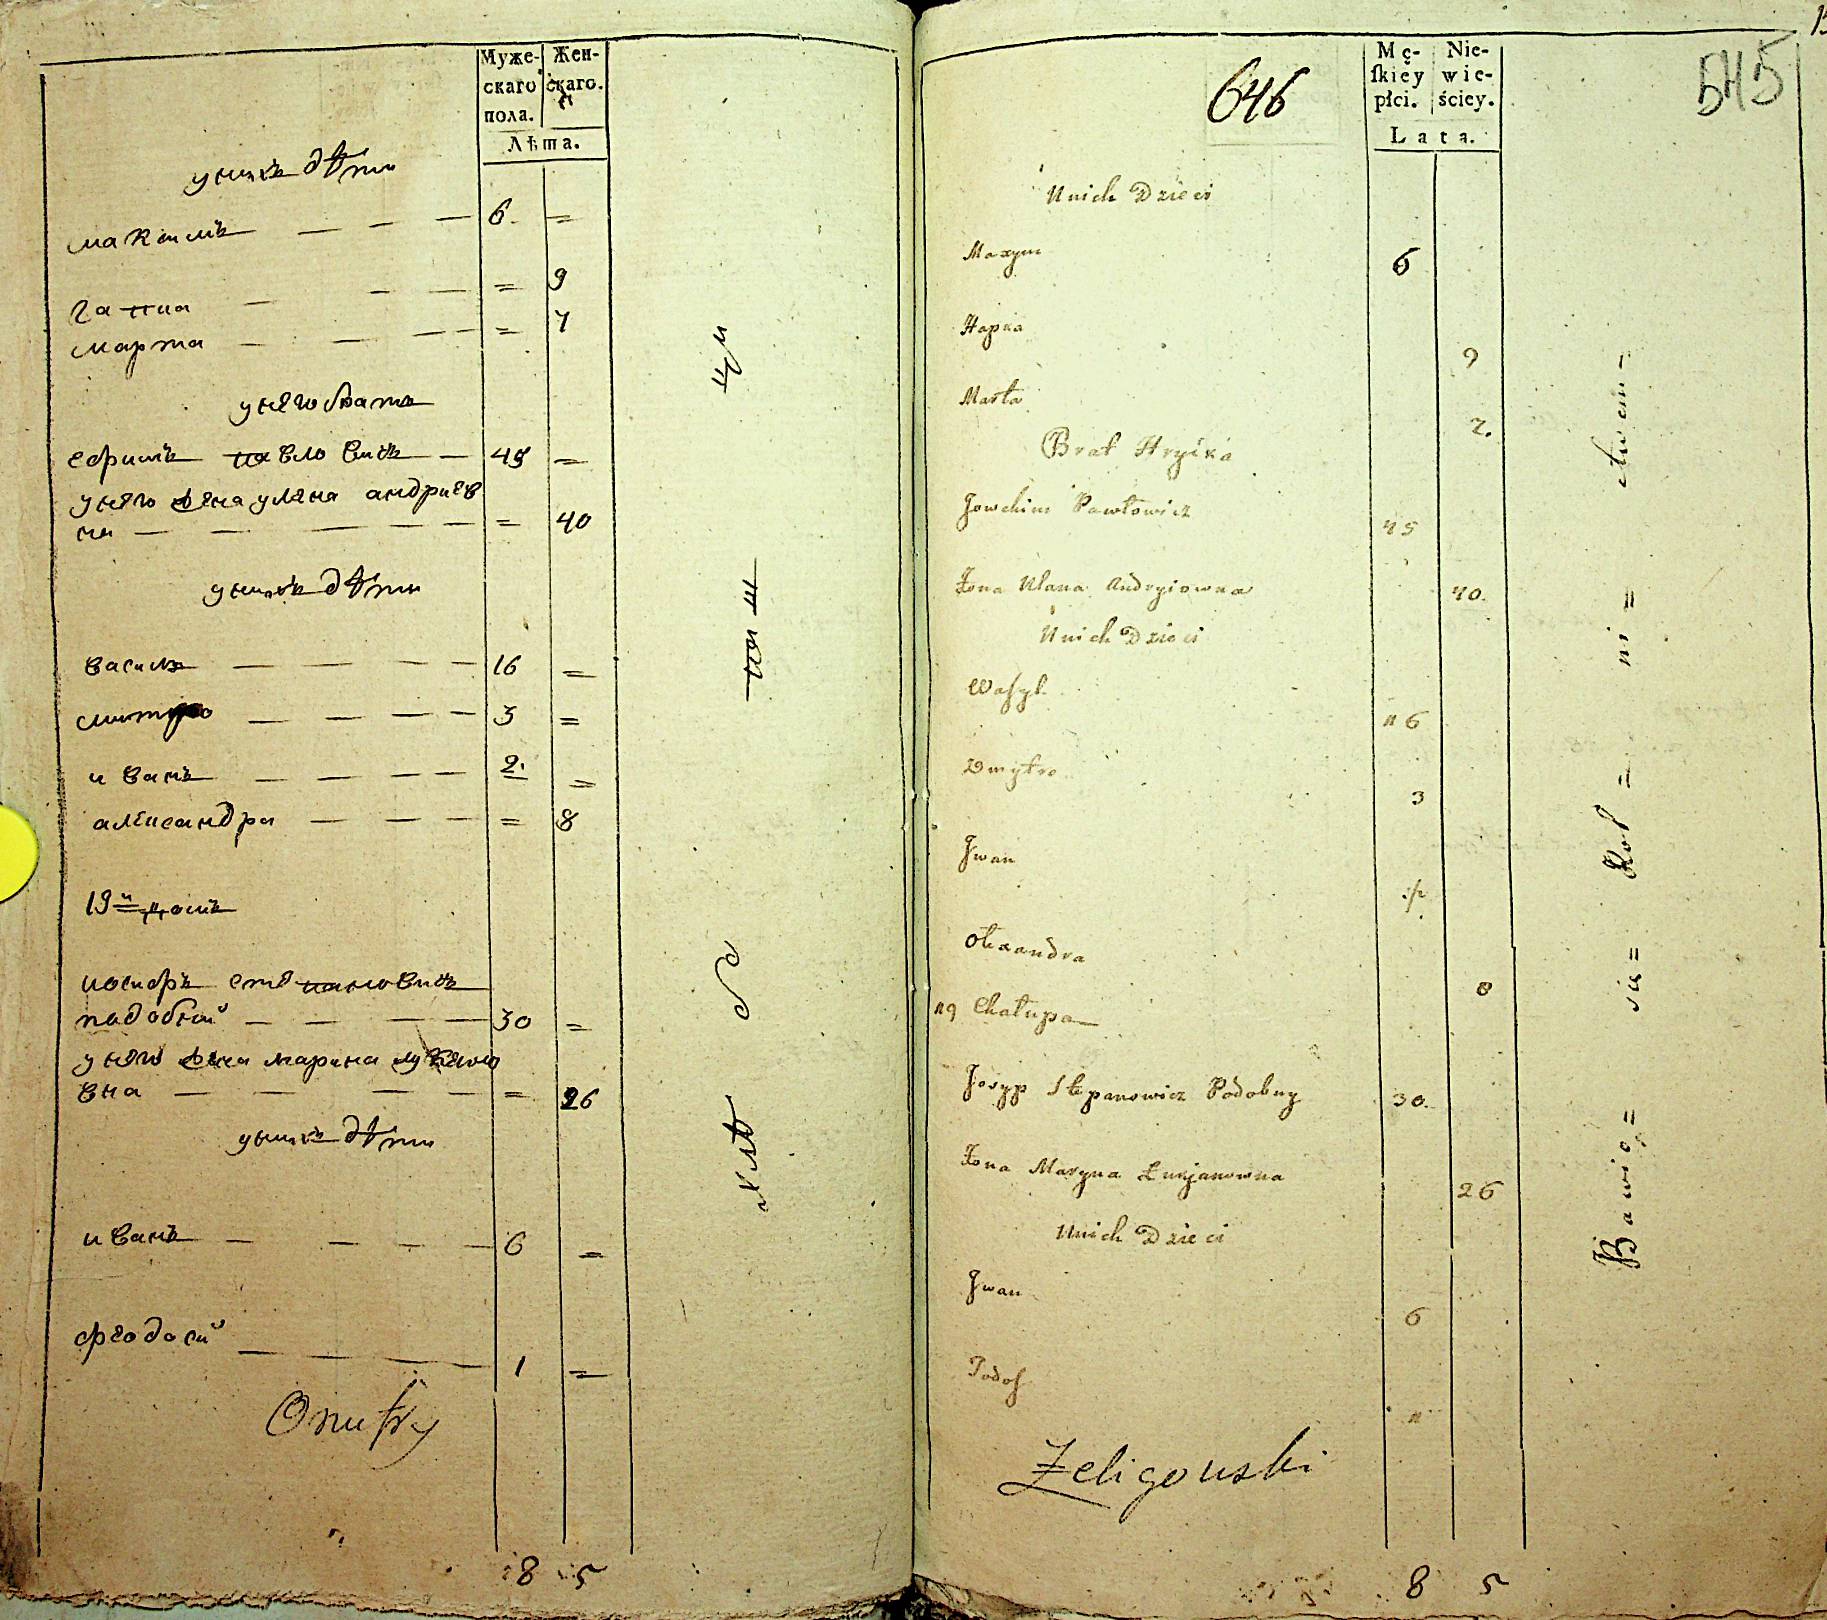 Муже-
скаго
пола.
Жен-
скаго.
Лѣта.
унихъ дѣти
максимъ 6. =
ганна = 9
марта = 7
унего братъ
ефимъ павловичъ 45 =
унего жена уляна андриев
на = 40
унихъ дѣти
василь 16 =
дмитро 3 =
иванъ 2. =
александра = 8
19й домъ
иосифъ степановичъ
падобній 30 =
унего жена марина лукяно
вна = 26
унихъ дѣти
иванъ 6 =
феодосий 1 =
Onufry
8 5
646
545
Mę-
ſkiey
płci.
Nie-
wie-
ściey.
Lata.
Unich Dzieci
Maxym 6
Hapka 9
Marta 7.
Brat Hryćka
Jowchim Pawłowicz 45
Żona Ulana Andryiowna 40.
Unich Dzieci
Waſyl 16
Dmytro 3
Jwan
Olexandra 8
19 Chałupa
Josyp Stepanowicz Podobny 30.
Żona Maryna Łukjanowna 26
Unich Dzieci
Jwan 6
Todoſ 1
Żeligowski
8 5